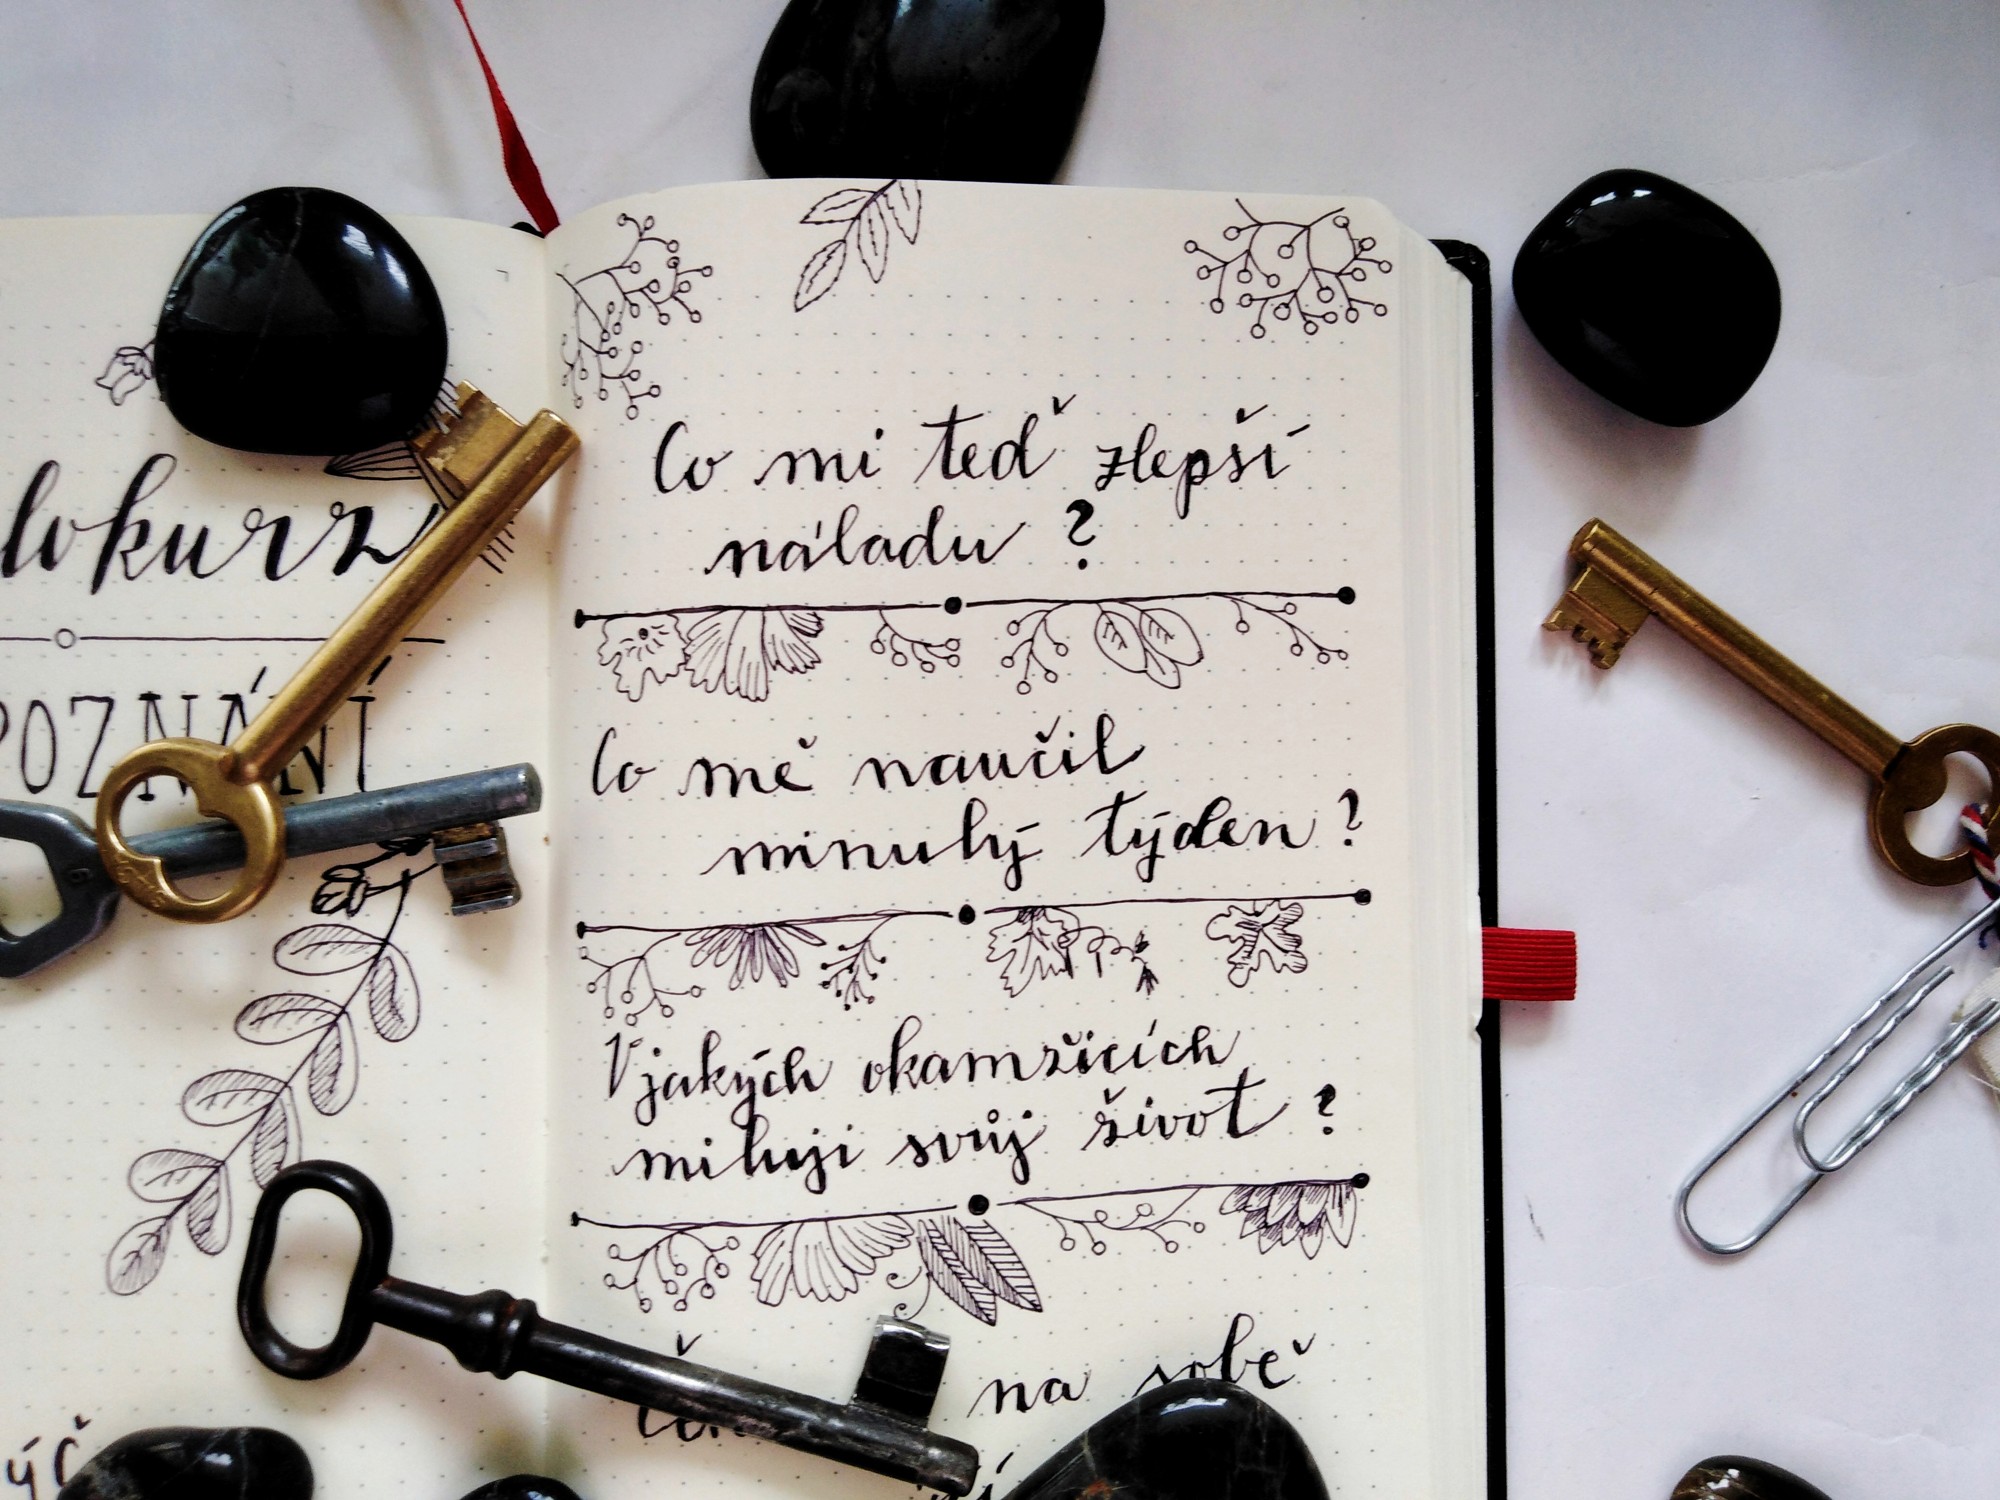 lokurz
POZNÁNÍ
Co mi teď zlepší
náladu?
Co mě naučil
minulý týden?
V jakých okamžicích
miluji svůj život?
na sobě